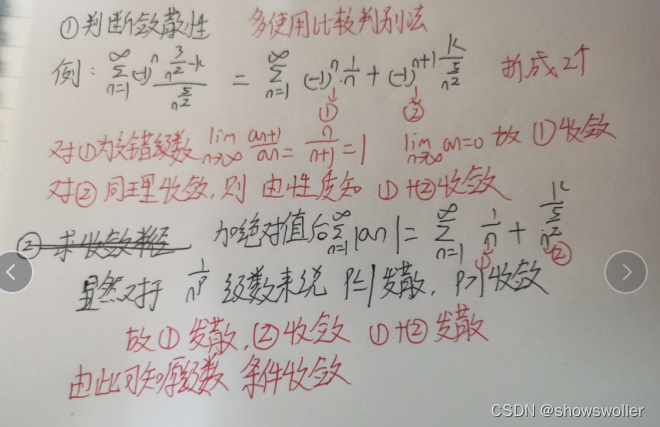 ①判断敛散性 多使用比较判别法
例: ∞∑n=1 (-1)^n (n^(3/2)-k)/n^(5/2) = ∞∑n=1 (-1)^n 1/n + (-1)^(n+1) k/n^(5/2) 拆成2个
① ②
对①为交错级数 lim n→∞ an+1/an = n/(n+1) = 1 lim n→∞ an=0 故 ①收敛
对② 同理收敛, 则 由性质知 ①+②收敛
② 求收敛半径 加绝对值后 ∞∑n=1 |an| = ∞∑n=1 1/n + k/n^(5/2)
① ②
显然对于 1/n^p 级数来说 P≤1发散, P>1收敛
故①发散,②收敛 ①+②发散
由此可知原级数 条件收敛
CSDN @showswoller